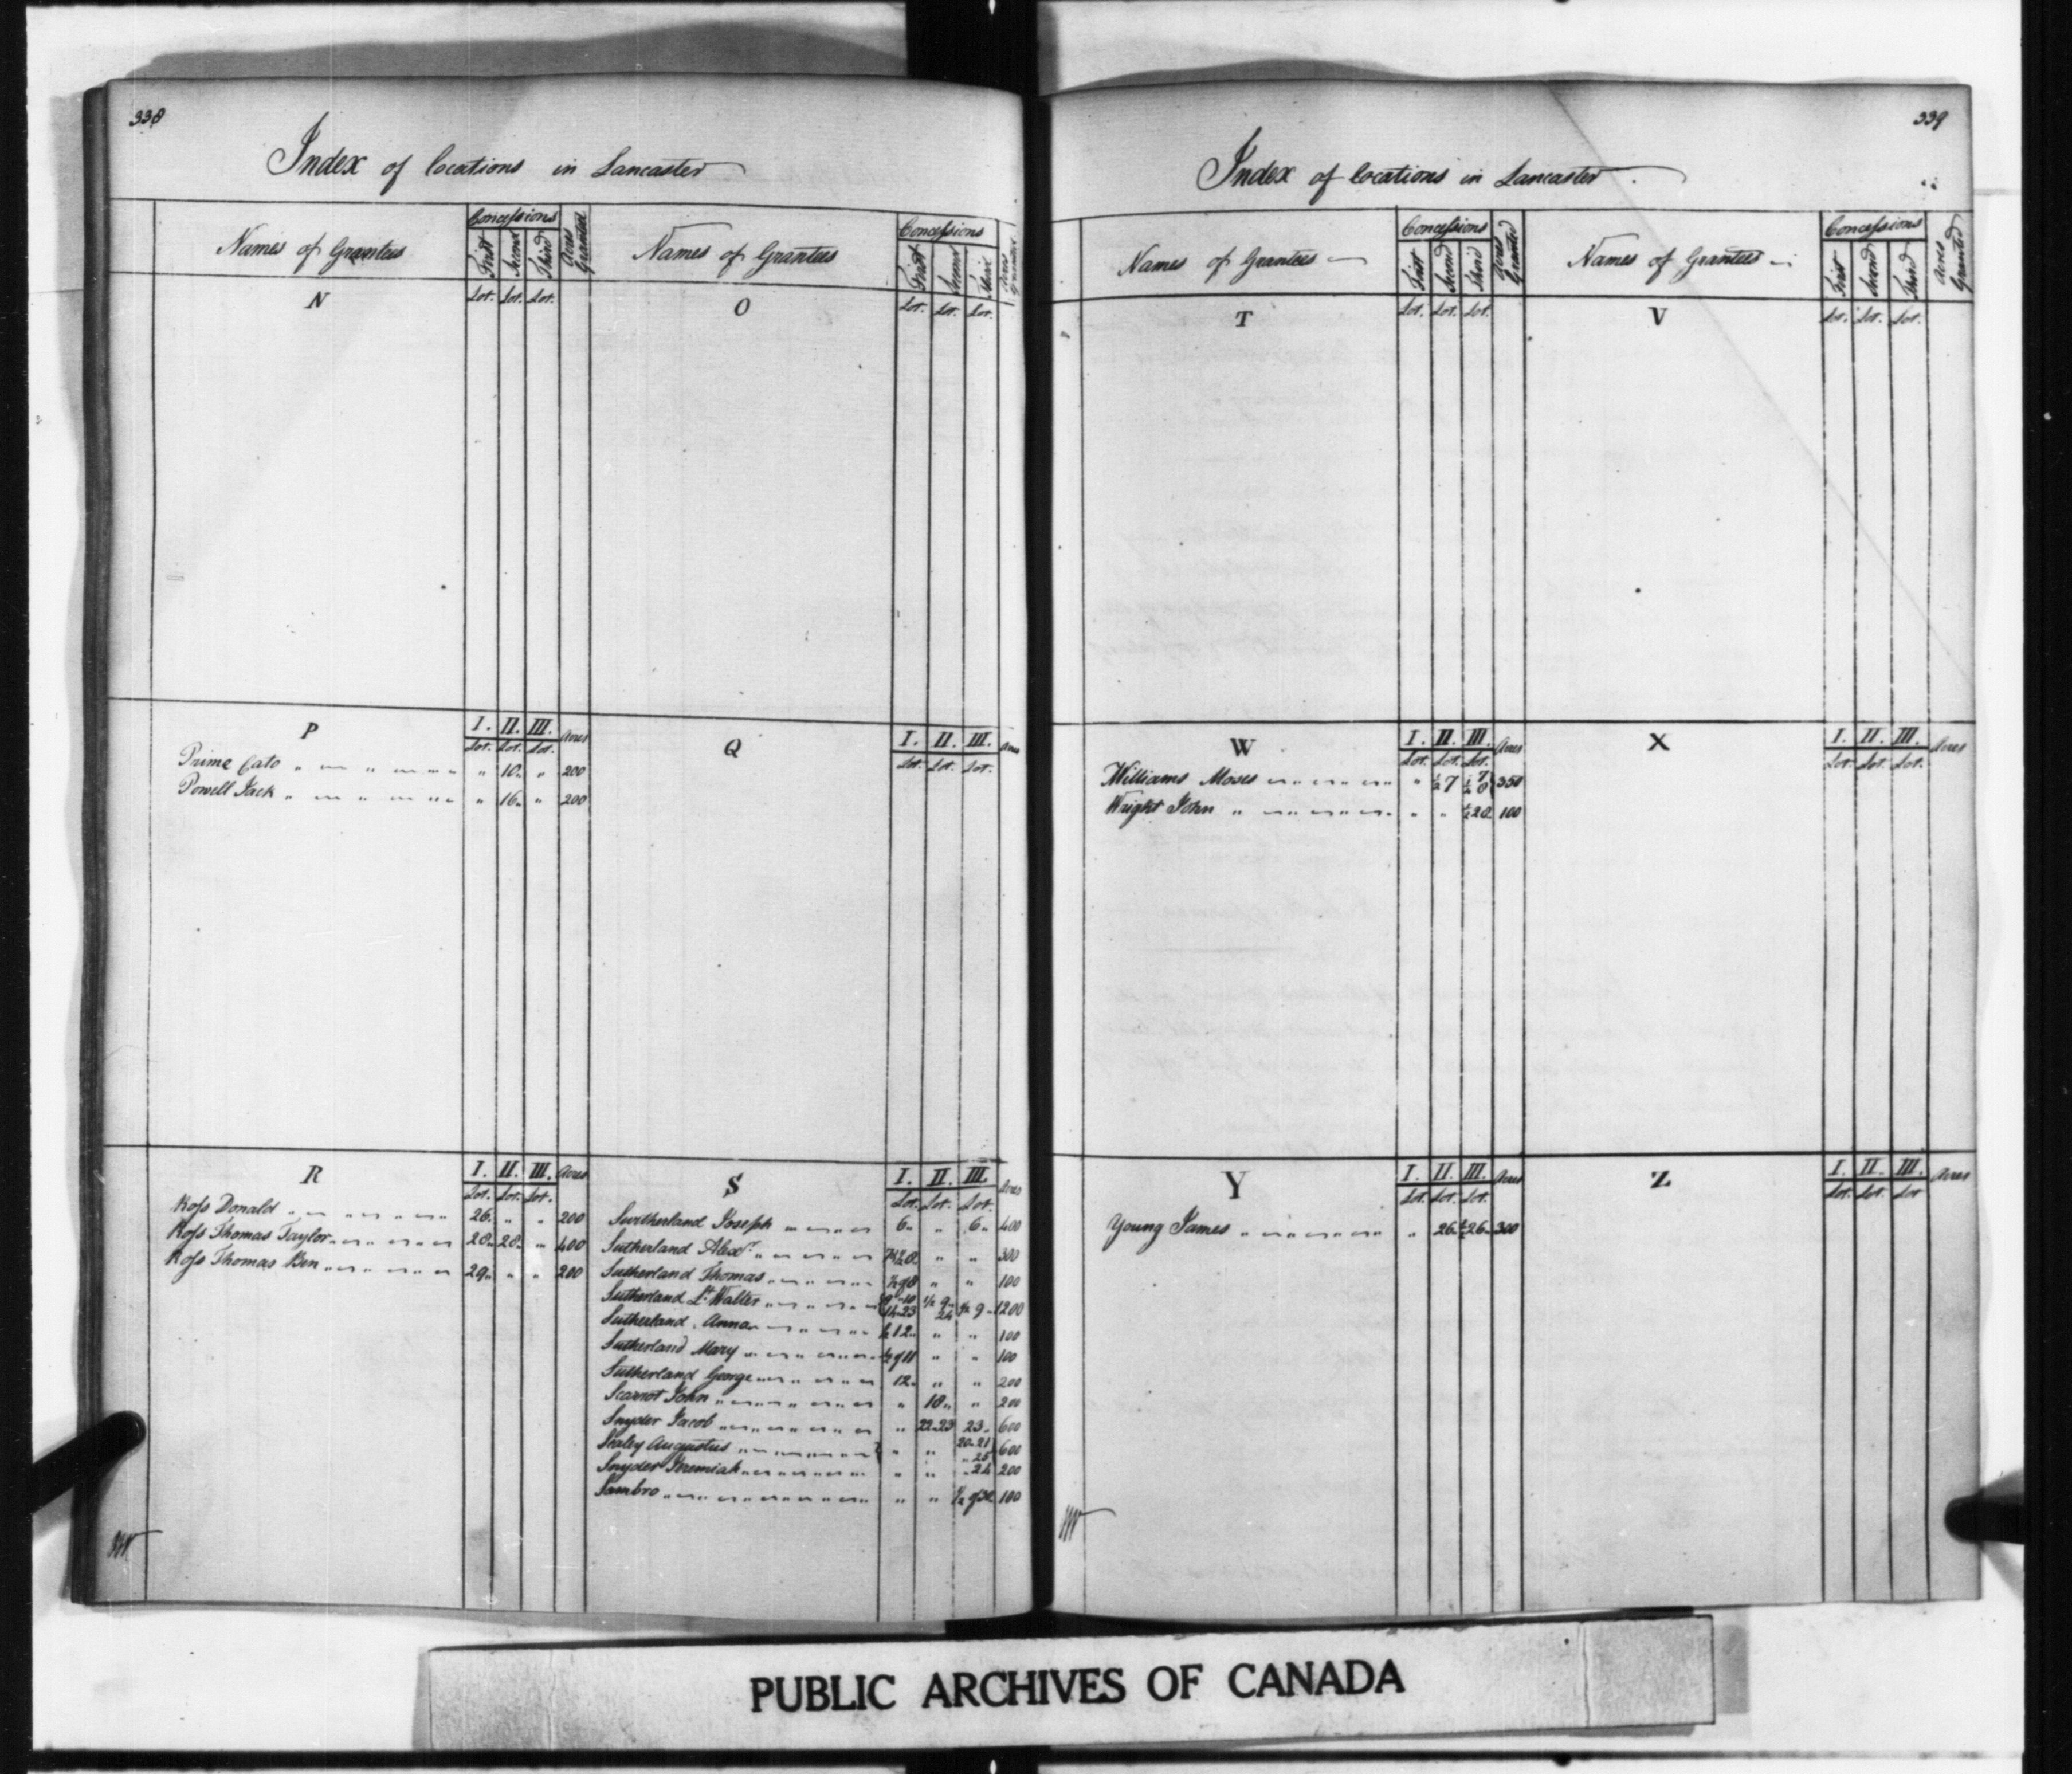 338
Index of locations in Lancaster
Names of Grantees
Concessions
First Second Third
Acres Granted
Names of Grantees
Concessions
First Second Third
N
Lot. Lot. Lot.
O
Lot. Lot. Lot.
P
I. II. III. Acres
Lot. Lot. Lot.
Prime Cato " " " 10 " 200
Powell Jack " " " 16 " 200
Q
I. II. III.
Lot. Lot. Lot.
R
I. II. III. Acres
Lot. Lot. Lot.
Ross Donald " " 26 " " 200
Ross Thomas Taylor " " 28 28 " 400
Ross Thomas Ben " " 29 " " 200
S
I. II. III. Acres
Lot. Lot. Lot.
Sutherland Joseph 6 " 6 400
Sutherland Alexr. " " 300
Sutherland Thomas " " 100
Sutherland Lt. Walter 1/2 9 24 1/2 9 1200
Sutherland Anna 1/2 12 " " 100
Sutherland Mary 1/2 of 11 " " 100
Sutherland George 12 " " 200
John " 18 " 200
Snyder Jacob " 22-23 23 600
Sealey Augustus " " 20-21 25 600
Snyder Jeremiah " " 24 200
Sambro " " 1/2 of 100
339
Index of locations in Lancaster
Names of Grantees
Concessions
First Second Third
Acres Granted
Names of Grantees
Concessions
First Second Third
Acres Granted
T
Lot. Lot. Lot.
V
Lot. Lot. Lot.
W
I. II. III. Acres
Lot. Lot. Lot.
Williams Moses " 1/2 7 350
Wright John " " 1/2 28 100
X
I. II. III. Acres
Lot. Lot. Lot.
Y
I. II. III. Acres
Lot. Lot. Lot.
Young James " 26 1/2 26 300
Z
I. II. III. Acres
Lot. Lot. Lot
PUBLIC ARCHIVES OF CANADA